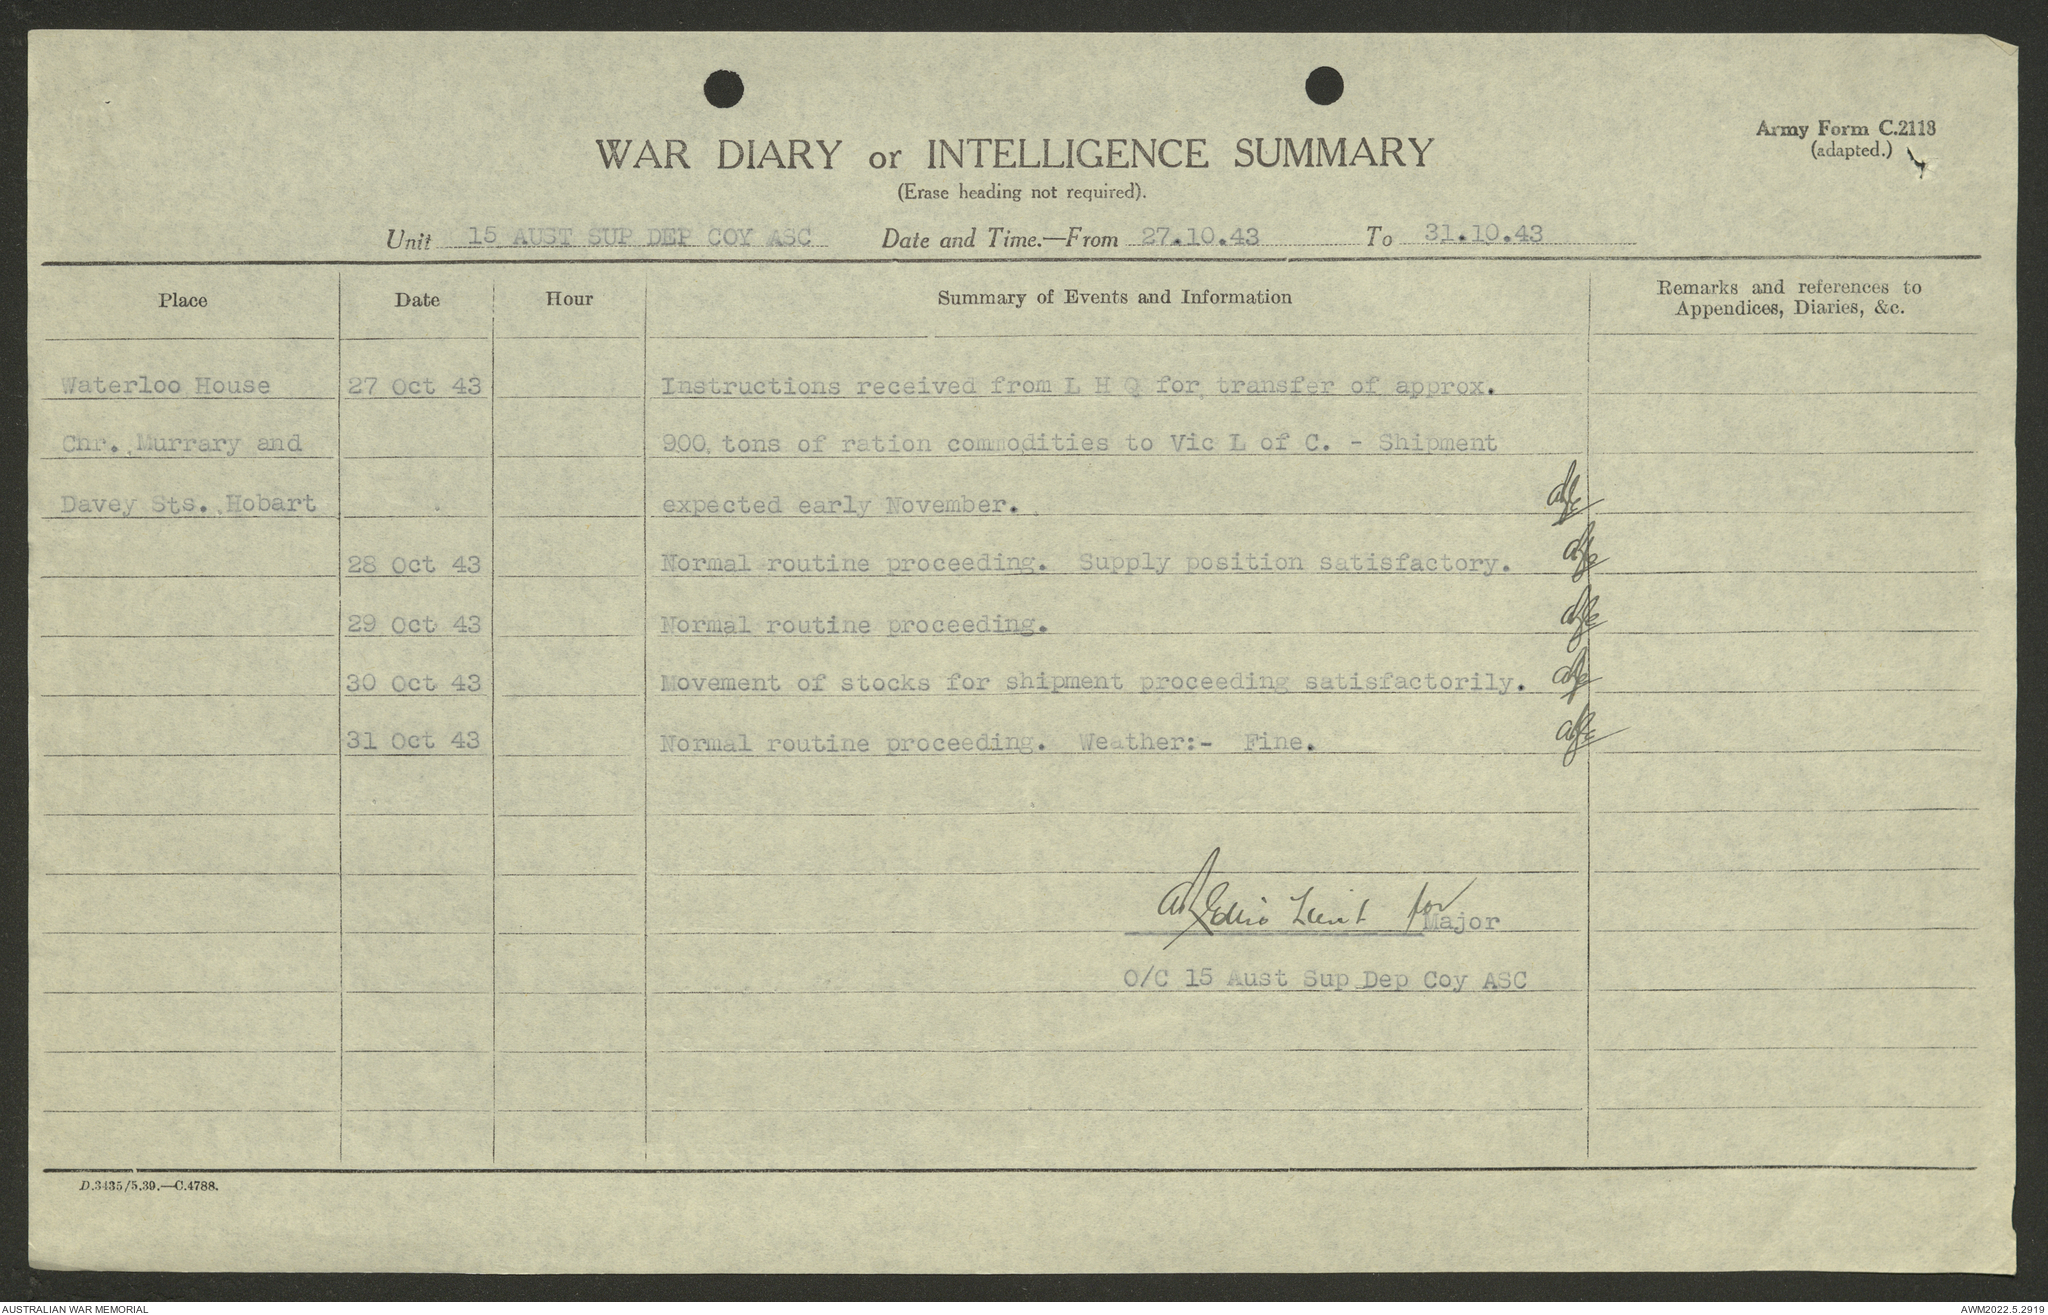 Army Form C.2118
(adapted.)
WAR DIARY or INTELLIGENCE SUMMARY
(Erase heading not required).
Unit 15 AUST SUP DEP COY ASC Date and Time.—From 27.10.43 To 31.10.43
Place Date Hour Summary of Events and Information Remarks and references to
Appendices, Diaries, &c.
Waterloo House 27 Oct 43 Instructions received from L H Q for transfer of approx.
Chr. Murrary and 900 tons of ration commodities to Vic L of C. - Shipment
Davey Sts. Hobart expected early November.
28 Oct 43 Normal routine proceeding. Supply position satisfactory.
29 Oct 43 Normal routine proceeding.
30 Oct 43 Movement of stocks for shipment proceeding satisfactorily.
31 Oct 43 Normal routine proceeding. Weather:- Fine.
Lieut for Major
O/C 15 Aust Sup Dep Coy ASC
D.3435/5.39.—C.4788.
AUSTRALIAN WAR MEMORIAL AWM2022.5.2919